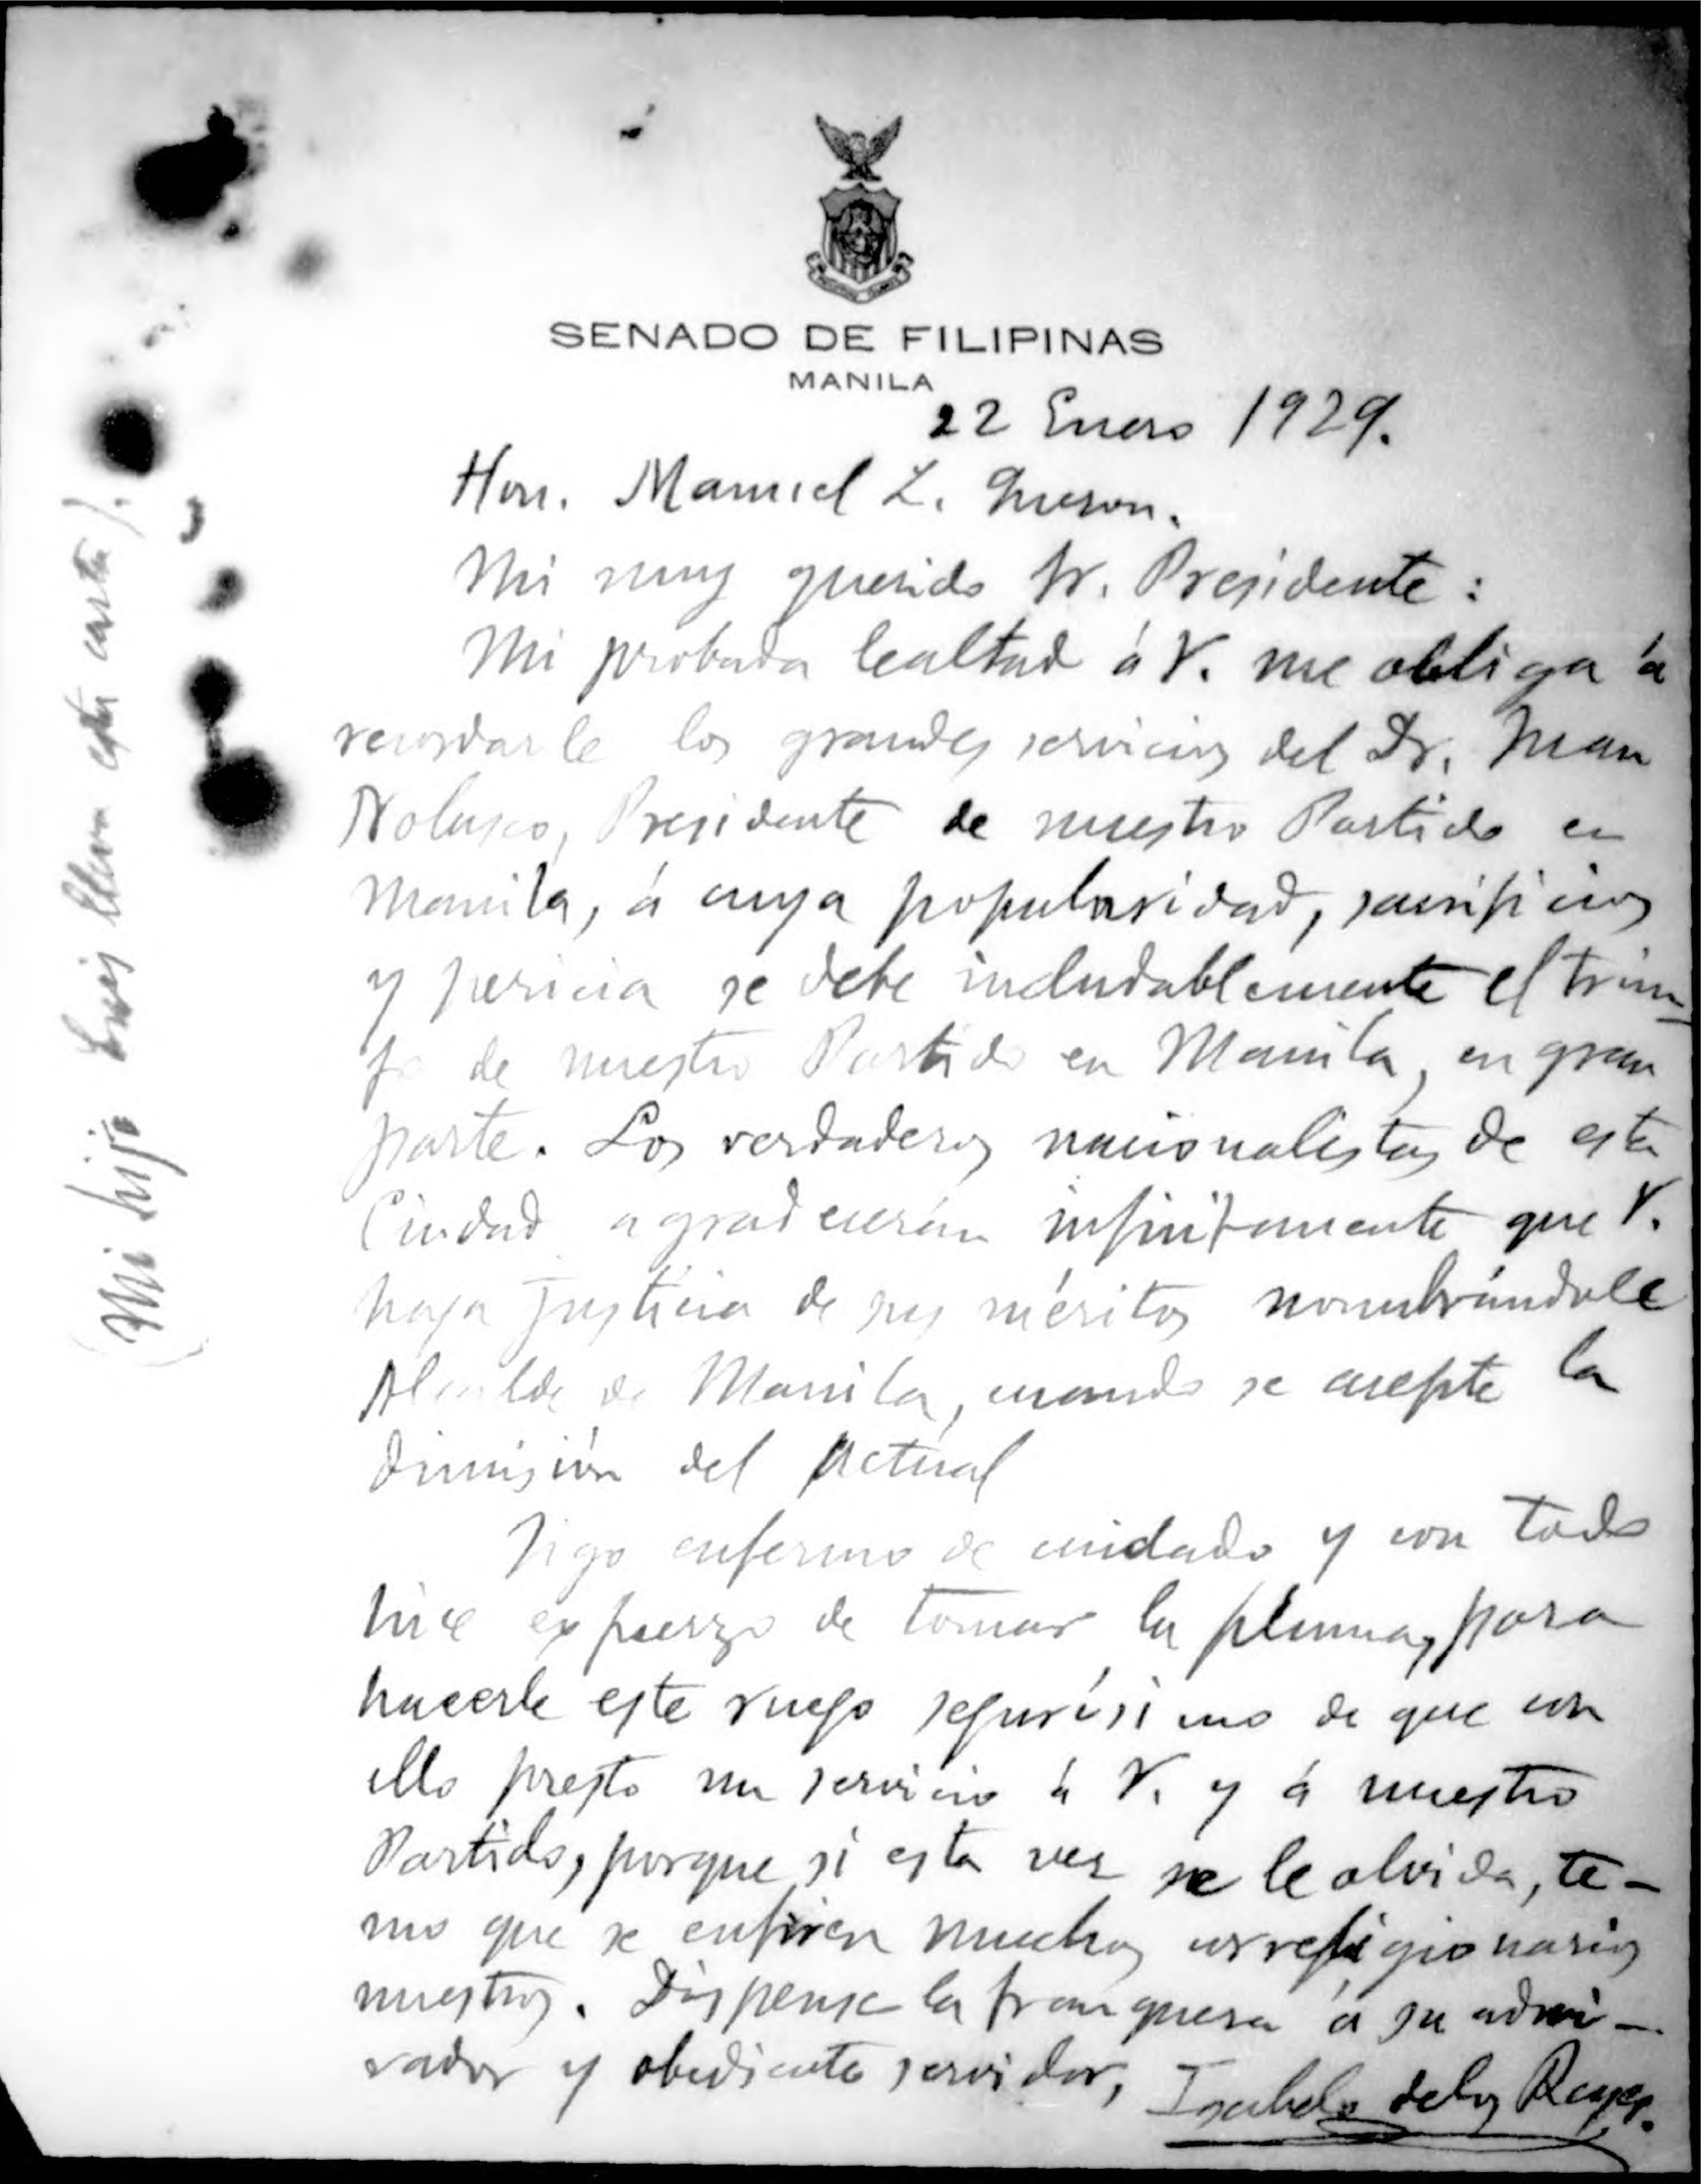 SENADO DE FILIPINAS
MANILA
22 Enero 1929.
Hon. Manuel L. Queson.
Mi muy querido Sr. Presidente:
Mi probada lealtad á V. me obliga á
recordarle los grandes servicios del Dr. Juan
Nolasco, Presidente de nuestro Partido en
Manila, á cuya popularidad, sacrificios
y pericia se debe indudablemente el triun-
fo de nuestro Partido en Manila, en gran
parte. Los verdaderos nacionalistas de esta
Ciudad agradecerán infinitamente que V.
haga justicia de sus méritos nombrándole
Alcalde de Manila, cuando se acepte la
dimisión del actual
Sigo enfermo de cuidado y con todo
hice esfuerzo de tomar la pluma, para
hacerle este ruego segurísimo de que con
ello presto un servicio á V. y á nuestro
Partido, porque si esta vez se le olvida, te-
mo que se enfríen muchos correligionarios
nuestros. Dispense la franquesa á su admi-
rador y obediente servidor, Isabelo de los Reyes.
(Mi hijo Luis lleva esta carta).